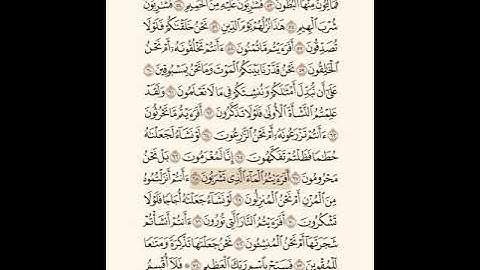 فَمَالِـُٔونَ مِنْهَا ٱلْبُطُونَ ٥٣ فَشَـٰرِبُونَ عَلَيْهِ مِنَ ٱلْحَمِيمِ ٥٤ فَشَـٰرِبُونَ
شُرْبَ ٱلْهِيمِ ٥٥ هَـٰذَا نُزُلُهُمْ يَوْمَ ٱلدِّينِ ٥٦ نَحْنُ خَلَقْنَـٰكُمْ فَلَوْلَا
تُصَدِّقُونَ ٥٧ أَفَرَءَيْتُم مَّا تُمْنُونَ ٥٨ ءَأَنتُمْ تَخْلُقُونَهُۥٓ أَمْ نَحْنُ
ٱلْخَـٰلِقُونَ ٥٩ نَحْنُ قَدَّرْنَا بَيْنَكُمُ ٱلْمَوْتَ وَمَا نَحْنُ بِمَسْبُوقِينَ ٦٠
عَلَىٰٓ أَن نُّبَدِّلَ أَمْثَـٰلَكُمْ وَنُنشِئَكُمْ فِى مَا لَا تَعْلَمُونَ ٦١ وَلَقَدْ
عَلِمْتُمُ ٱلنَّشْأَةَ ٱلْأُولَىٰ فَلَوْلَا تَذَكَّرُونَ ٦٢ أَفَرَءَيْتُم مَّا تَحْرُثُونَ
٦٣ ءَأَنتُمْ تَزْرَعُونَهُۥٓ أَمْ نَحْنُ ٱلزَّٰرِعُونَ ٦٤ لَوْ نَشَآءُ لَجَعَلْنَـٰهُ
حُطَـٰمًا فَظَلْتُمْ تَفَكَّهُونَ ٦٥ إِنَّا لَمُغْرَمُونَ ٦٦ بَلْ نَحْنُ
مَحْرُومُونَ ٦٧ أَفَرَءَيْتُمُ ٱلْمَآءَ ٱلَّذِى تَشْرَبُونَ ٦٨ ءَأَنتُمْ أَنزَلْتُمُوهُ
مِنَ ٱلْمُزْنِ أَمْ نَحْنُ ٱلْمُنزِلُونَ ٦٩ لَوْ نَشَآءُ جَعَلْنَـٰهُ أُجَاجًا فَلَوْلَا
تَشْكُرُونَ ٧٠ أَفَرَءَيْتُمُ ٱلنَّارَ ٱلَّتِى تُورُونَ ٧١ ءَأَنتُمْ أَنشَأْتُمْ
شَجَرَتَهَآ أَمْ نَحْنُ ٱلْمُنشِـُٔونَ ٧٢ نَحْنُ جَعَلْنَـٰهَا تَذْكِرَةً وَمَتَـٰعًا
لِّلْمُقْوِينَ ٧٣ فَسَبِّحْ بِٱسْمِ رَبِّكَ ٱلْعَظِيمِ ٧٤ ۞ فَلَآ أُقْسِمُ